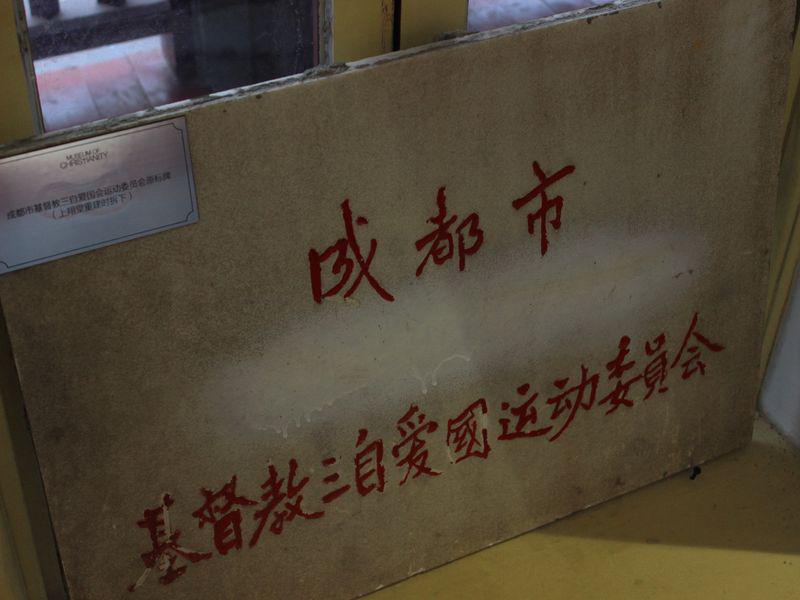 MUSEUM OF
CHRISTIANITY
成都市基督教三自爱国会运动委员会原标牌
（上翔堂重建时拆下）
成都市
基督教三自爱國运动委員会